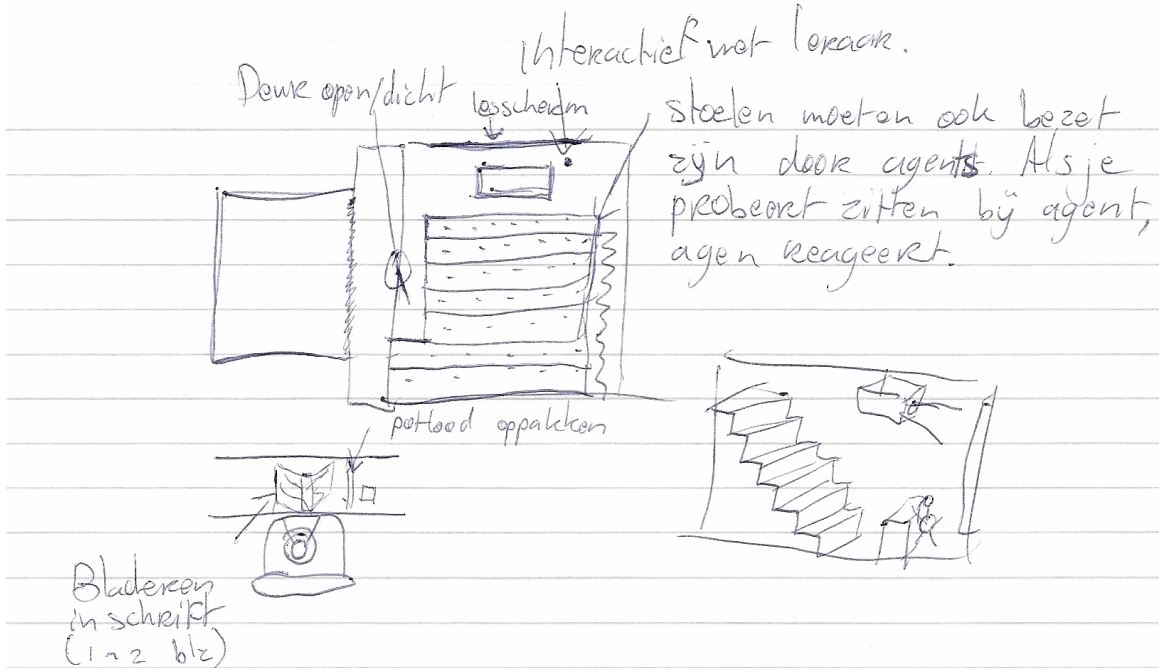 Interactief met leraar.
Deur open/dicht
lesscherm
stoelen moeten ook bezet
zijn door agents. Als je
probeert zitten bij agent,
agen reageert.
potlood oppakken
Bladeren
in schrift
(1 a 2 blz)